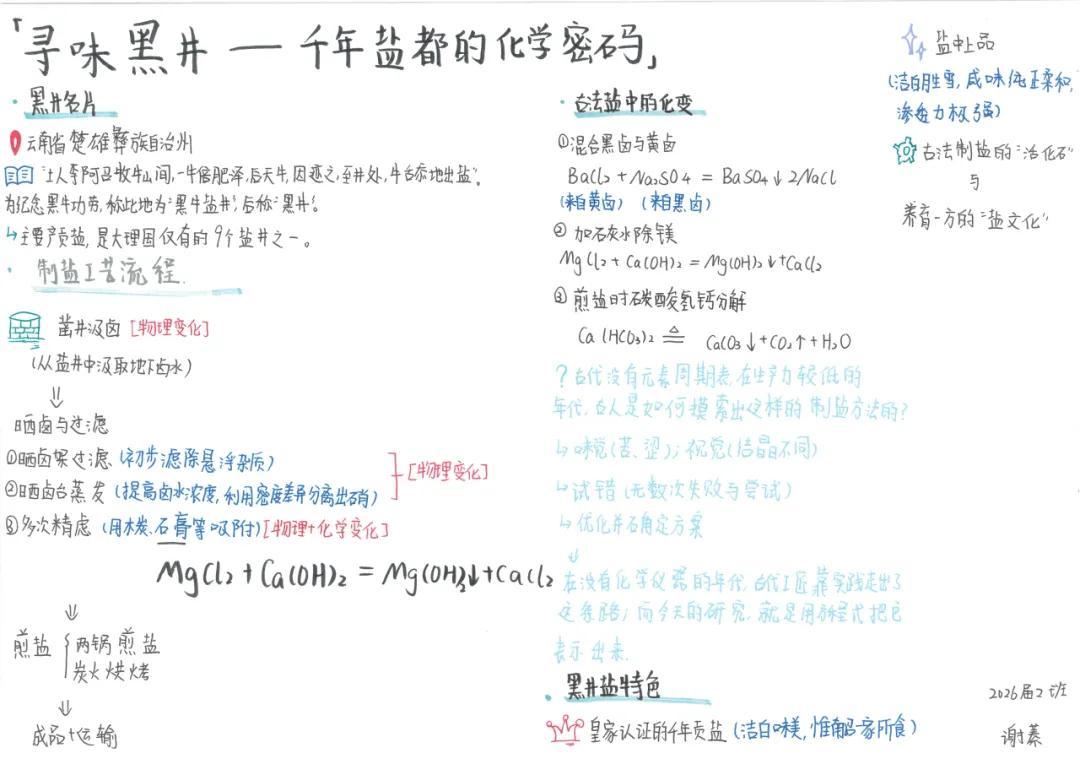 「寻味黑井 — 千年盐都的化学密码」
· 黑井名片
云南省楚雄彝族自治州
"土人李阿召牧牛山间,一牛倍肥泽,后失牛,因迹之,至井处,牛舌舔地出盐"。
为纪念黑牛功劳,称此地为"黑牛盐井",后称"黑井"。
↳主要产贡盐,是大理国仅有的9个盐井之一。
· 制盐工艺流程.
凿井汲卤 [物理变化]
(从盐井中汲取地下卤水)
⇓
晒卤与过滤
①晒卤架过滤、(初步滤除悬浮杂质)
②晒卤台蒸发 (提高卤水浓度,利用密度差异分离出硝)
[物理变化]
③多次精虑 (用木炭、石膏等吸附)[物理+化学变化]
MgCl2 + Ca(OH)2 = Mg(OH)2↓+CaCl2
⇓
煎盐 { 两锅煎盐
炭火烘烤
⇓
成品+运输
· 古法盐中的化变
①混合黑卤与黄卤
BaCl2 + Na2SO4 = BaSO4↓ 2NaCl
(来自黄卤) (来自黑卤)
② 加石灰水除镁
MgCl2 + Ca(OH)2 = Mg(OH)2↓+CaCl2
③ 煎盐时碳酸氢钙分解
Ca(HCO3)2 ≜ CaCO3↓+CO2↑+H2O
?古代没有元素周期表,在生产力较低的
年代,古人是如何摸索出这样的制盐方法的?
↳味觉(苦、涩);视觉(结晶不同)
↳试错(无数次失败与尝试)
↳优化并确定方案
⇓
在没有化学仪器的年代,古代工匠靠实践走出了
这条路,而今天的研究,就是用方程式把它
表示出来.
· 黑井盐特色
皇家认证的千年贡盐 (洁白味美,惟有韶家所食)
盐中上品
(洁白胜雪,咸味纯正柔和,
渗透力极强)
古法制盐的"活化石"
与
养育一方的"盐文化"
2026届2班
谢蓁